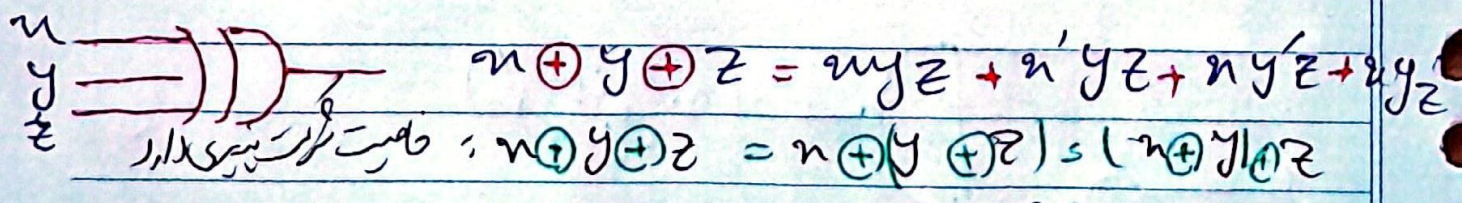 x
y
z
x ⊕ y ⊕ z = xyz + x'yz + xy'z + xyz'
خاصیت شرکت پذیری دارد : x ⊕ y ⊕ z = x ⊕ (y ⊕ z) = (x ⊕ y) ⊕ z